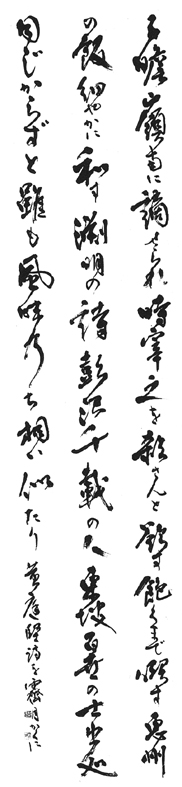 子瞻嶺南に謫せられ時宰之を殺さんと欲す飽くまで喫す恵州
の飯細やかに和す淵明の詩彭沢千載の人東坡百世の士出処
同じからずと雖も風味乃ち相い似たり 黄庭堅詩を 霽月かく